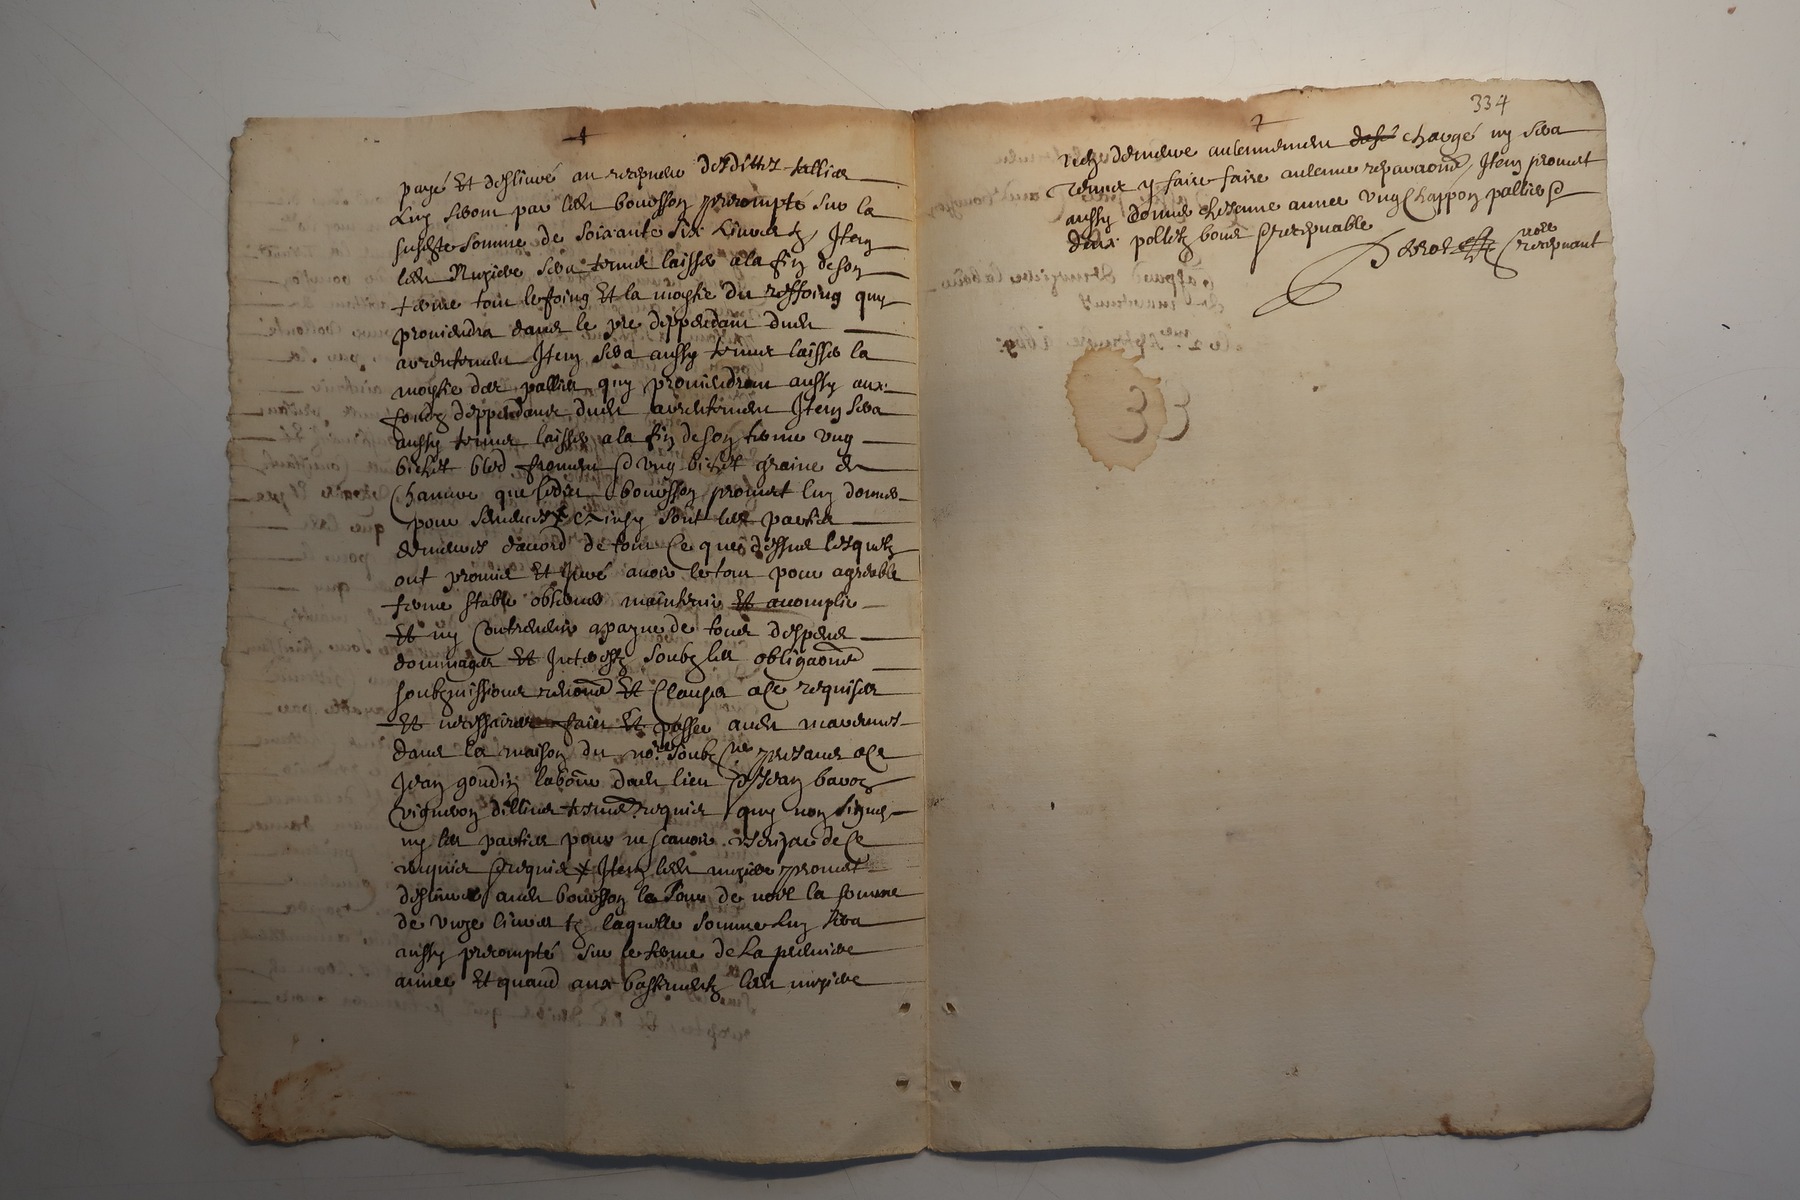 payé et desliuré au
luy seront par led bouesson precompté sur la
susdite somme de soixante six liures tz Item
led Muziere sera tenu laisser a la fin de son
terme tout le foing et la moytie du reffoing quy
prouiendra dans le pre deppendant dud
arrentement Item sera aussy tenu laisser la
moytie des pallies quy prouiendront aussy aux
fondz deppendans dud arrentement Item sera
aussy tenu laisser a la fin de son terme vng
bichet bled froment et vng bichet graine de
chanure que led bouesson promet luy donner
pour et insy sont les parties
d'acord de tout ce que dessus lesquelz
ont promis et juré auoir le tout pour agreable
ferme stable obseruer maintenir et acomplir
et ny contreuenir a payne de tous despens
dommages et interestz soubz les obligaons
soubzmissions et clauses a ce requises
et necessaires fait et passé aud
dans la maison du no.re soubz.ne presans a ce
Jean goudin labour dud lieu et Jean
vigneron requis quy non signé
ny les parties pour ne scauoir de ce
requis Item led muziere promet
desliurer aud bouesson le jour de noel la somme
de unze liures tz laquelle somme luy sera
aussy precompté sur le terme de la premiere
année et quand aux bastimentz led muziere
334
aulcunement chargé ny sera
tenu y faire faire aulcune reparaons Item promet
aussy donner chescune année vng chappon pallier et
deux polletz bons et receuables
no.re